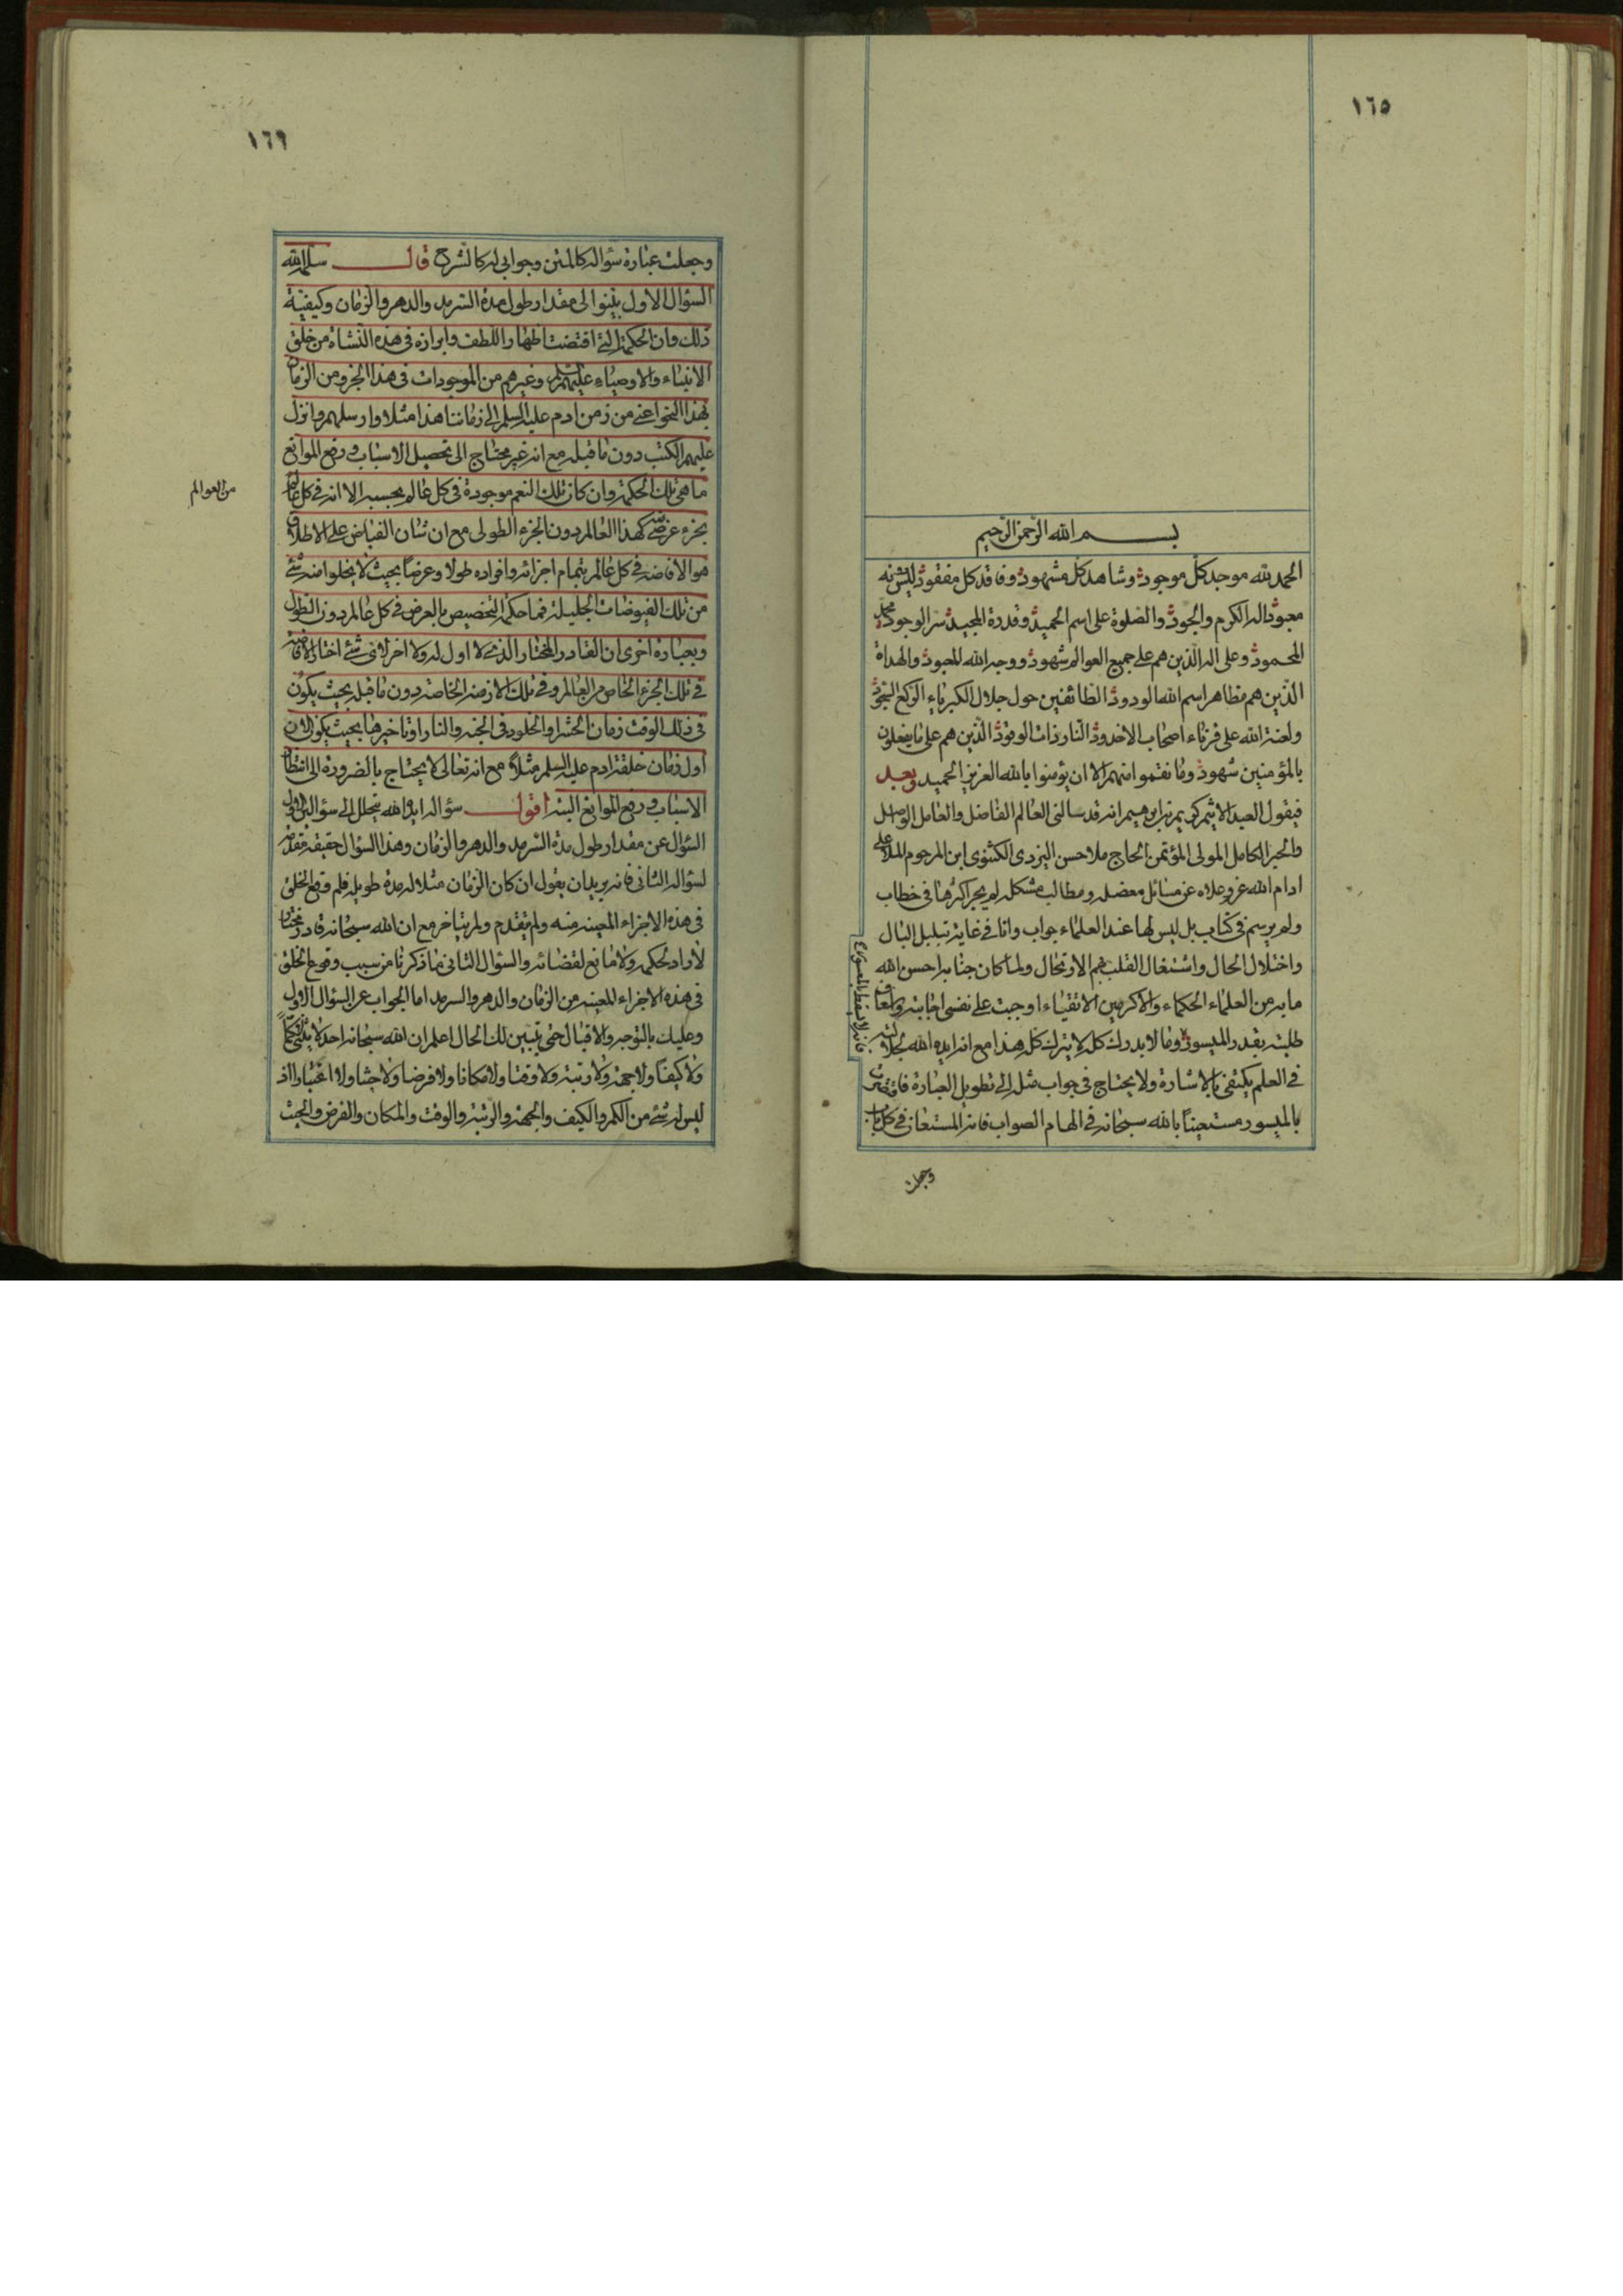 ١٦٥
بسم الله الرحمن الرحيم
الحمد لله موجد كل موجود وشاهد كل مشهود وفاقد كل مفقود ليس له
معبود اله الكرم والجود والصلوة على اسم الحميد وقدرة المجيد سر الوجود محمد
المحمود وعلى اله الذين هم على جميع العوالم شهود ووجه الله المعبود والهداة
الذين هم مظاهر اسم الله الودود الطائفين حول جلال الكبرياء الركع السجود
ولعنة الله على قرناء اصحاب الاخدود النار ذات الوقود الذين هم على ما يفعلون
بالمؤمنين شهود وما نقموا منهم الا ان يؤمنوا بالله العزيز الحميد وبعد
فيقول العبد الاثيم كريم بن ابرهيم انه قد سالنى العالم الفاضل والعامل الواصل
والحبر الكامل المولى المؤتمن الحاج ملا حسن اليزدى الكثنوى ابن المرحوم الملا على
ادام الله عزه وعلاه عن مسائل معضله ومطالب مشكله لم يجر اكثرها فى خطاب
ولم يرسم فى كتاب بل ليس لها عند العلماء جواب وانا فى غاية تبلبل البال
واختلال الحال واشتغال القلب بهم الارتحال ولما كان جنابه احسن الله
مابه من العلماء الحكماء والاكرمين الاتقياء اوجبت على نفسى اجابته واسعاف
طلبته بقدر الميسور وما لا يدرك كله لا يترك كله هذا مع انه ايده الله لجلالته
فانه لا يسقط الميسور
فى العلم يكتفى بالاشارة ولا يحتاج فى جواب مثله الى تطويل العبارة فاقتصرت
بالميسور مستعينا بالله سبحانه فى الهام الصواب فانه المستعان فى كل باب
وجعلت
١٦٩
وجعلت عبارة سؤاله كالمتن وجوابى له كالشرح قال سلمه الله
السؤال الاول بينوا لى مقدار طول مدة السرمد والدهر والزمان وكيفية
ذلك وان الحكمة التى اقتضت اظهار اللطف وابرازه فى هذه النشاة من خلق
الانبياء والاوصياء عليهم السلم وغيرهم من الموجودات فى هذا الجزء من الزمان
بهذا النحو اعنى من زمن ادم عليه السلم الى زماننا هذا مثلا وارسلهم وانزل
عليهم الكتب دون ما قبله مع انه غير محتاج الى تحصيل الاسباب ورفع الموانع
ما هى تلك الحكمة وان كان تلك النعم موجودة فى كل عالم بحسبه الا انه فى كل عالم
من العوالم
بجزء عرضى كهذا العالم دون الجزء الطولى مع ان شان الفياض على الاطلاق
هو الافاضة فى كل عالم بتمام اجزائه وافراده طولا وعرضا بحيث لا يخلوا منه شئ
من تلك الفيوضات الجليلة فما حكمة التخصيص بالعرض فى كل عالم دون الطول
وبعبارة اخرى ان القادر المختار الذى لا اول له ولا اخر لاى شئ اختار الافاضة
فى تلك الجزء الخاص من العالم وفى تلك الازمنة الخاصة دون ما قبله بحيث يكون
فى ذلك الوقت زمان الحشر او الخلود فى الجنة والنار او تاخيرها بحيث يكون الان
اول زمان خلقة ادم عليه السلم مثلا مع انه تعالى لا يحتاج بالضرورة الى انتظار
الاسباب ورفع الموانع البتة اقول سؤاله ايده الله ينحل الى سؤالين الاول
السؤال عن مقدار طول مدة السرمد والدهر والزمان وهذا السؤال حقيقة مقدمة
لسؤاله الثانى فانه يريد ان يقول ان كان الزمان مثلا له مدة طويلة فلم وقع الخلق
فى هذه الاجزاء المعينة منه ولم يتقدم ولم يتاخر مع ان الله سبحانه قادر مختار
لا راد لحكمه ولا مانع لقضائه والسؤال الثانى ما ذكرنا من سبب وقوع الخلق
فى هذه الاجزاء المعينة من الزمان والدهر والسرمد اما الجواب عن السؤال الاول
وعليك بالتوجه والاقبال حتى يتبين لك الحال اعلم ان الله سبحانه احد لا يثنى كما
ولا كيفا ولا جهة ولا رتبة ولا وقتا ولا مكانا ولا فرضا ولا حيثا ولا اعتبارا اذ
ليس له شئ من الكم والكيف والجهة والرتبة والوقت والمكان والفرض والحيث